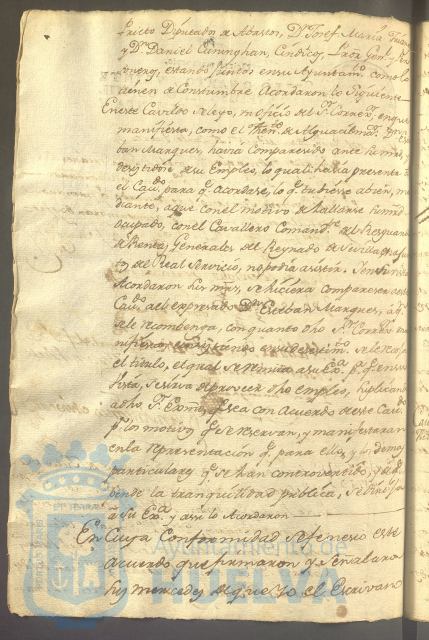 Prieto Diputados de Abastos, Dn. Josef María
y Dn. Daniel Cuninghan, Síndico, Pror. Genl. y Per
sonero, estando juntos en su Ayuntamto. como lo
tienen de Costumbre Acordaron lo Siguiente
En este Cavildo se leyo, un oficio del Sr. Corregr. en que
manifiesta, como el Thente. de Alguacil mor. Dn. Este
ban Marques, havia comparesido ante su md. y
desistidose de su Empleo, lo qual havia presente a
el Cavdo. para q. acordase, lo q. tubiese a bien, me
diante, a que con el motivo de hallarse su md.
ocupado, con el Cavallero Comandte. del Resguardo
de Rentas Generales del Reynado de Sevilla
del Real Servicio, no podia asistir. Y en su vista
Acordaron sus mrds. se hiciera compareser a este
Cavdo. al expresado Dn. Esteban Marques, a q.
se le reconbenga, con quanto dho Sr. Corregr.
nifiesta,
el titulo, el qual se remita a su Exa. pa. q. en su
vista, se sirva de proveer dho empleo, suplicando
a dho Sr. Exmo. q. sea con Acuerdo de este Cavdo.
pr. los motivos q. se reservan, y manifestaran
en la representacion q. para ello, y los demas
particulares q. se han controvertido,
la tranquilidad publica, se
a Su Exa. y asi lo Acordaron
En Cuya Conformidad se fenecio este
acuerdo que firmaron y señalaron
sus mercedes de que Yo el Escrivano
Ayuntamiento de
HUELVA